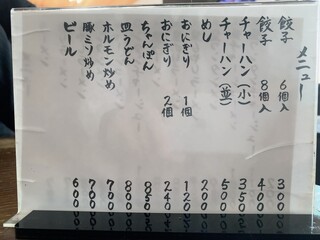 メニュー
餃子 6個入 300
餃子 8個入 400
チャーハン(小) 350
チャーハン(並) 500
めし 200
おにぎり 1個 120
おにぎり 2個 240
ちゃんぽん 850
皿うどん 800
ホルモン炒め 700
豚ミソ炒め 700
ビール 600